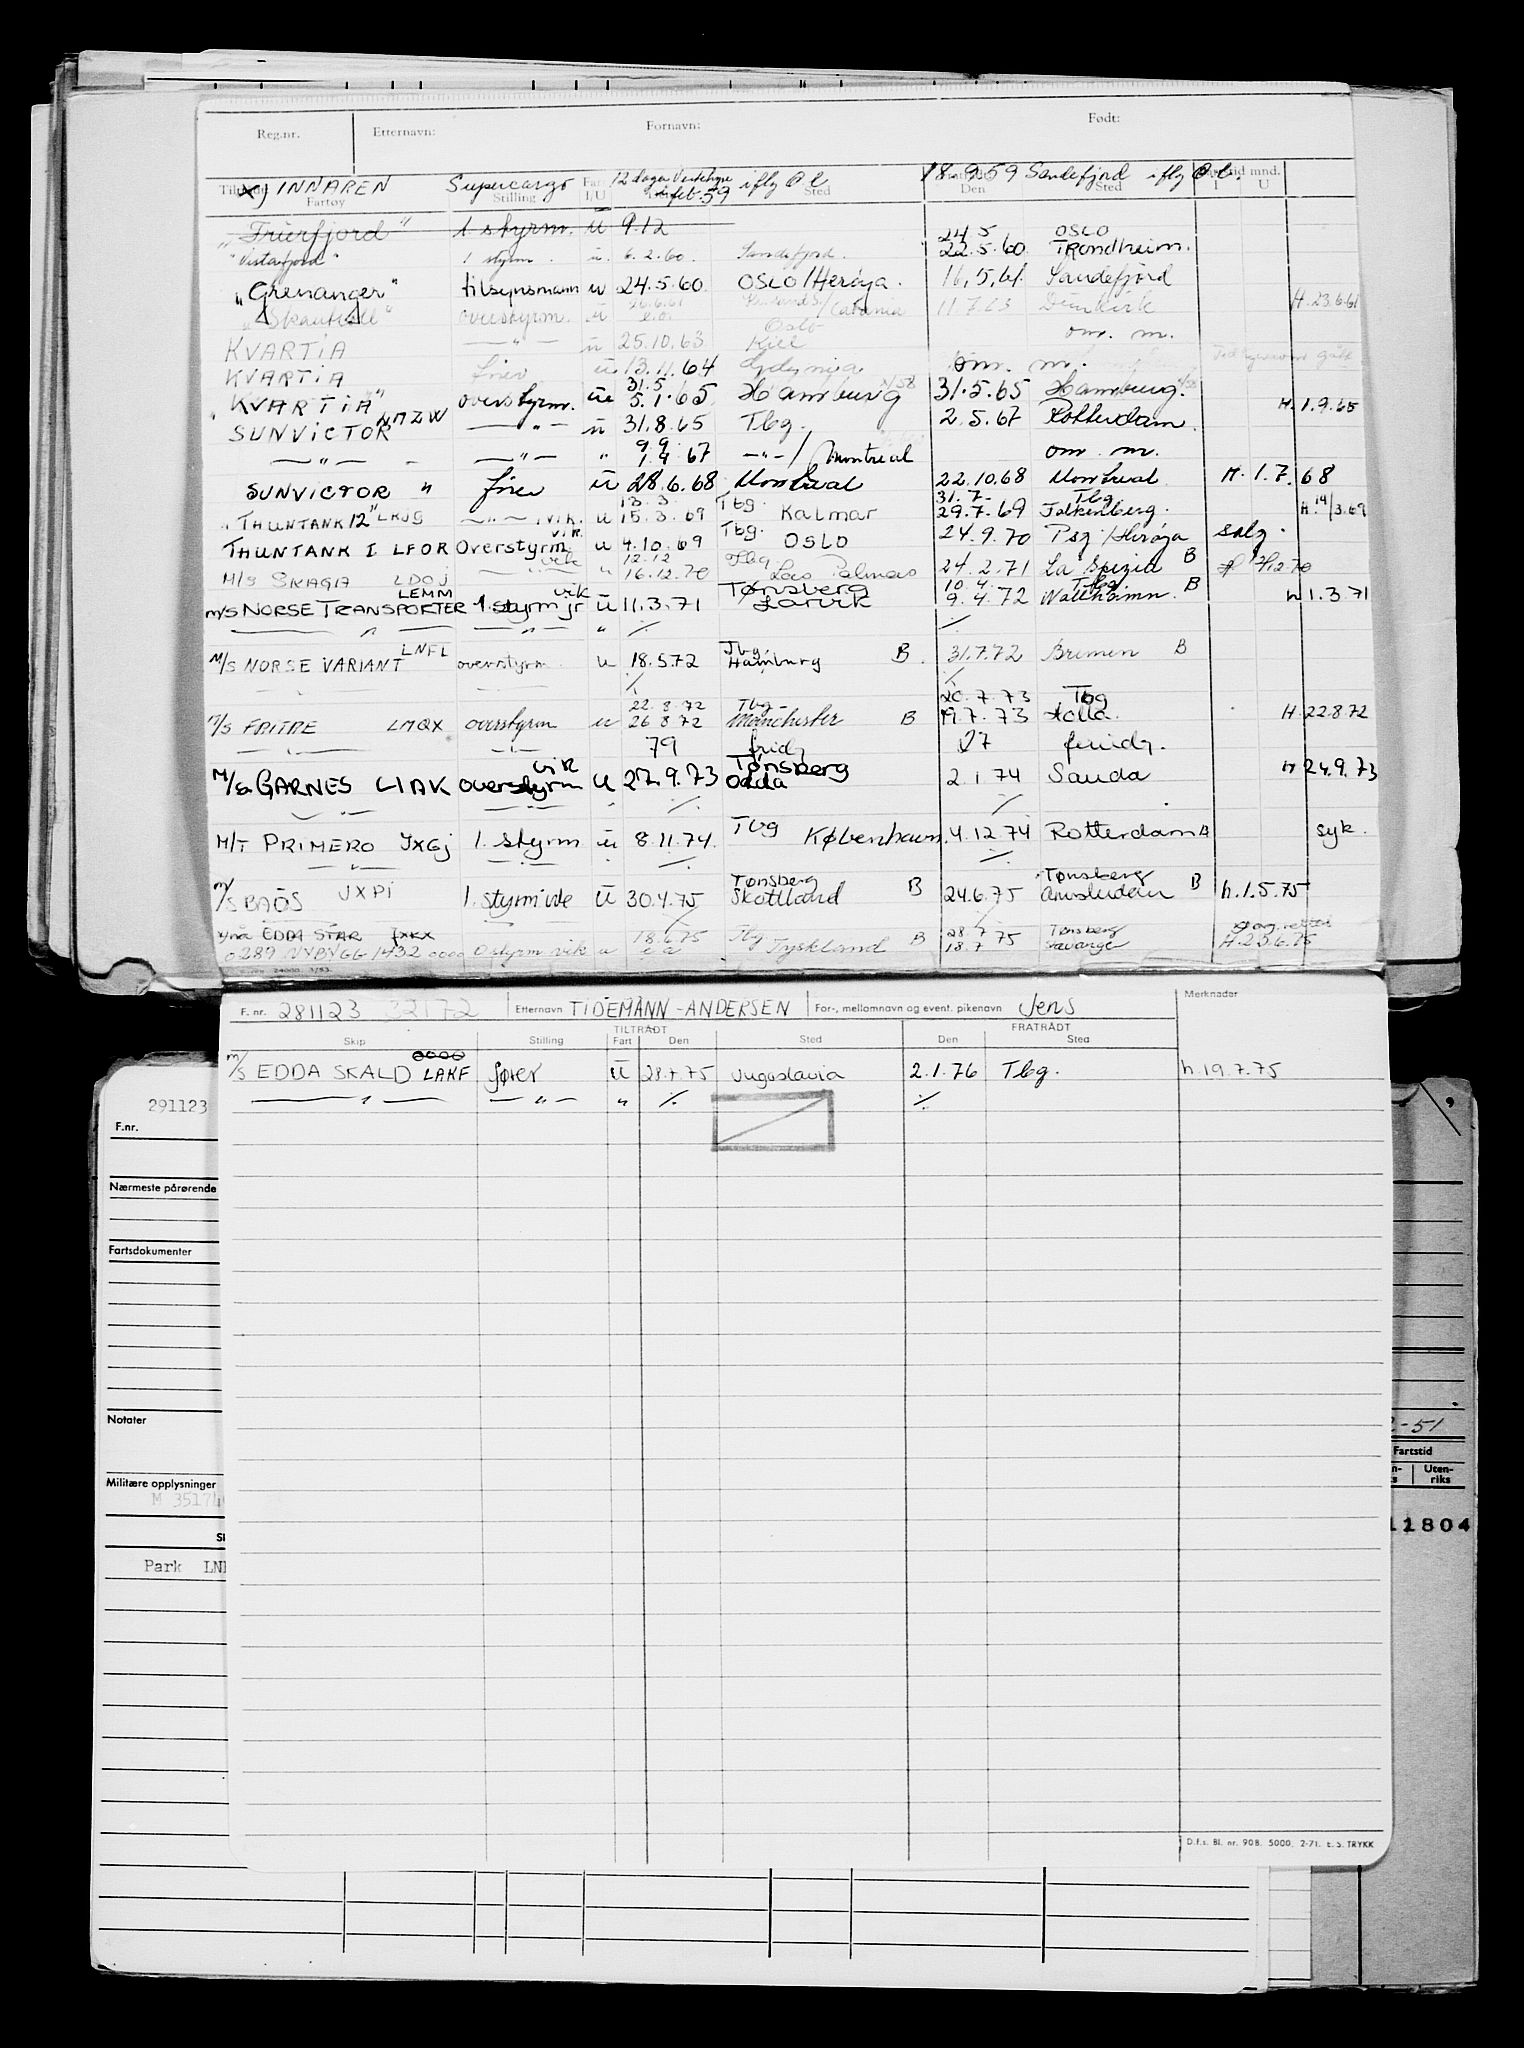 Reg.nr. Etternavn: Fornavn: Født:
INNAREN Supercargo 12 dager 59 ifly Ø l 18.9.59 Sandefjord ifly Ø l.
Fartøy Stilling I/U Sted Den Sted I U
"Frierfjord" 1 styrm. u 9.12 24.5 OSLO
"Vistafjord" 1 styrm. u. 6.2.60. Sandefjord. 22.5.60. Trondheim.
"Grenanger" tilsynsmann u 24.5.60 OSLO/Herøya. 16,5,61. Sandefjord
"Skauholt" overstyrm. u Catania 11.7.63 Dunkirk H. 23.6.61
KVARTIA —"— u 25.10.63 Oslo Kiel om. m.
KVARTIA fører u 13.11.64 Gdynia om. m.
"KVARTIA" overstyrm. u 31.5 5.1.65 Hamburg 31.5.65 Hamburg.
SUNVICTOR LMZW —"— u 31.8.65 Tbg. 2.5.67 Rotterdam. H. 1.9.65
—"— —"— " 9.9 67 —"—/Montreal om. m.
SUNVICTOR " fører u 28.6.68 Montreal 22.10.68 Montreal H. 1.7.68
"THUNTANK 12" LKJG —"— vik. u 13.3 15.3.69 Tbg. Kalmar 31.7- 29.7.69 Tbg. Falkenberg. H. 14/3.69
THUNTANK I LFOR Overstyrm. vik u 4.10.69 Tbg. OSLO 24.9.70 Psg/Herøya salg.
M/S SKAGIA LDOJ —"— vik " 12.12 16.12.70 Tbg Las Palmas 24.2.71 La Spezia B
M/S NORSE TRANSPORTER LEMM 1. styrm jr vik u 11.3.71 Tønsberg Larvik 10.4. 9.4.72 Tbg. Wallhamn. B h 1.3.71
—"— —"— " ٪ ٪
M/S NORSE VARIANT LNFL overstyrm. u 18.5.72 Tbg. Hamburg B. 31.7.72 Bremen B
M/S FRITRE LMQX overstyrm u 22.8.72 26.8.72 Tbg- Manchester B 20.7.73 19.7.73 Tbg H. 22.8.72
—"— —"— 79 fridg 27 feriedg.
M/S GARNES LIAK overstyrm vik u 27.9.73 Tønsberg Odda 2.1.74 Sauda H 24.9.73
M/T PRIMERO JXGJ 1. styrm u 8.11.74. Tbg København. 4.12.74 Rotterdam B syk.
M/S BAÖS JXPI 1. styrm u 30.4.75 Tønsberg Skottland B 24.6.75 Tønsberg Amsterdam B h. 1.5.75
nå EDDA STAR JXKX
0289 NYBYGG 1432 0000 O styrm vik u 18.6.75 Tbg Tyskland B 28.7 18.7 75 Tønsberg Stavanger H. 23.6.75
F. nr. 281123 32172 Etternavn TIDEMANN-ANDERSEN For-, mellomnavn og event. pikenavn Jens Merknader
TILTRÅDT FRATRÅDT
Skip Stilling Fart Den Sted Den Sted
M/S EDDA SKALD LAKF fører u 28.7.75 Jugoslavia 2.1.76 Tbg. h. 19.7.75
—"— —"— " ٪ ٪
291123
F.nr.
Nærmeste pårørende
Fartsdokumenter
Notater
Militære opplysninger
Park
-51
Fartstid
Uten-riks
11804
D.f.s. Bl. nr. 908. 5000. 2-71. E.S. TRYKK